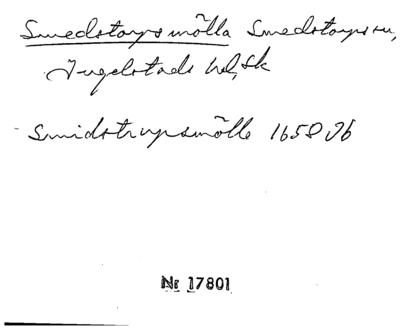 Smedstorpsmölla Smedstorps sn,
Ingelstads hd, Sk
Smidstrupsmölle 1658 Jb
Nr 17801